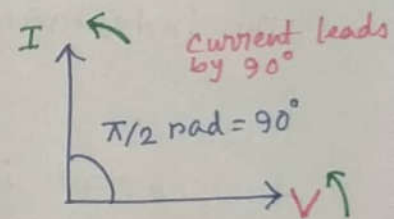 I
current leads
by 90°
π/2 rad = 90°
V